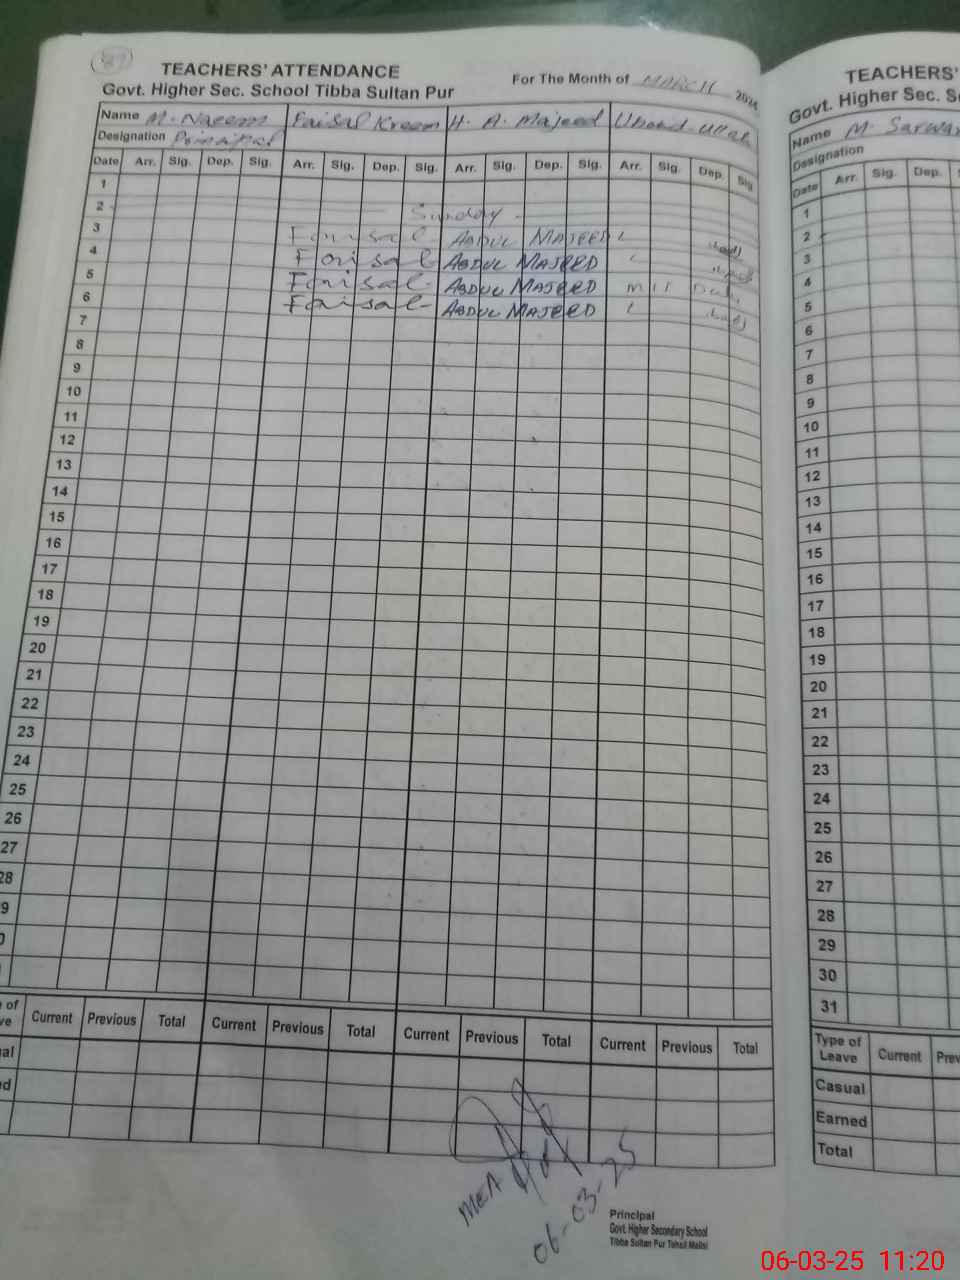 TEACHERS' ATTENDANCE
Govt. Higher Sec. School Tibba Sultan Pur
For The Month of MARCH 202
Name M. Naeem Faisal Kreem H. A. Majeed
Designation Principal
Date Arr. Sig. Dep. Sig. Arr. Sig. Dep. Sig. Arr. Sig. Dep. Sig. Arr. Sig. Dep. Sig
1
2 Sunday
3 Faisal ABDUL MAJEED L
4 Faisal ABDUL MAJEED L
5 Faisal ABDUL MAJEED
6 Faisal ABDUL MAJEED L
7
8
9
10
11
12
13
14
15
16
17
18
19
20
21
22
23
24
25
26
27
28
9
0
of
ve Current Previous Total Current Previous Total Current Previous Total Current Previous Total
al
d
MEA
06-03-25
Principal
Govt. Higher Secondary School
Tibba Sultan Pur Tehsil Mailsi
TEACHERS'
Govt. Higher Sec. S
Name M. Sarwar
Designation
Date Arr. Sig. Dep.
1
2
3
4
5
6
7
8
9
10
11
12
13
14
15
16
17
18
19
20
21
22
23
24
25
26
27
28
29
30
31
Type of
Leave Current Prev
Casual
Earned
Total
06-03-25 11:20